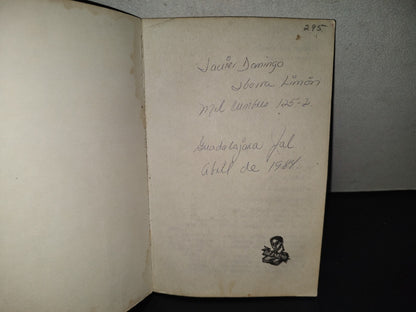 295
Javier Domingo
Ibarra Limón
Mil Cumbres 125-2
Guadalajara Jal
Abril de 1984.